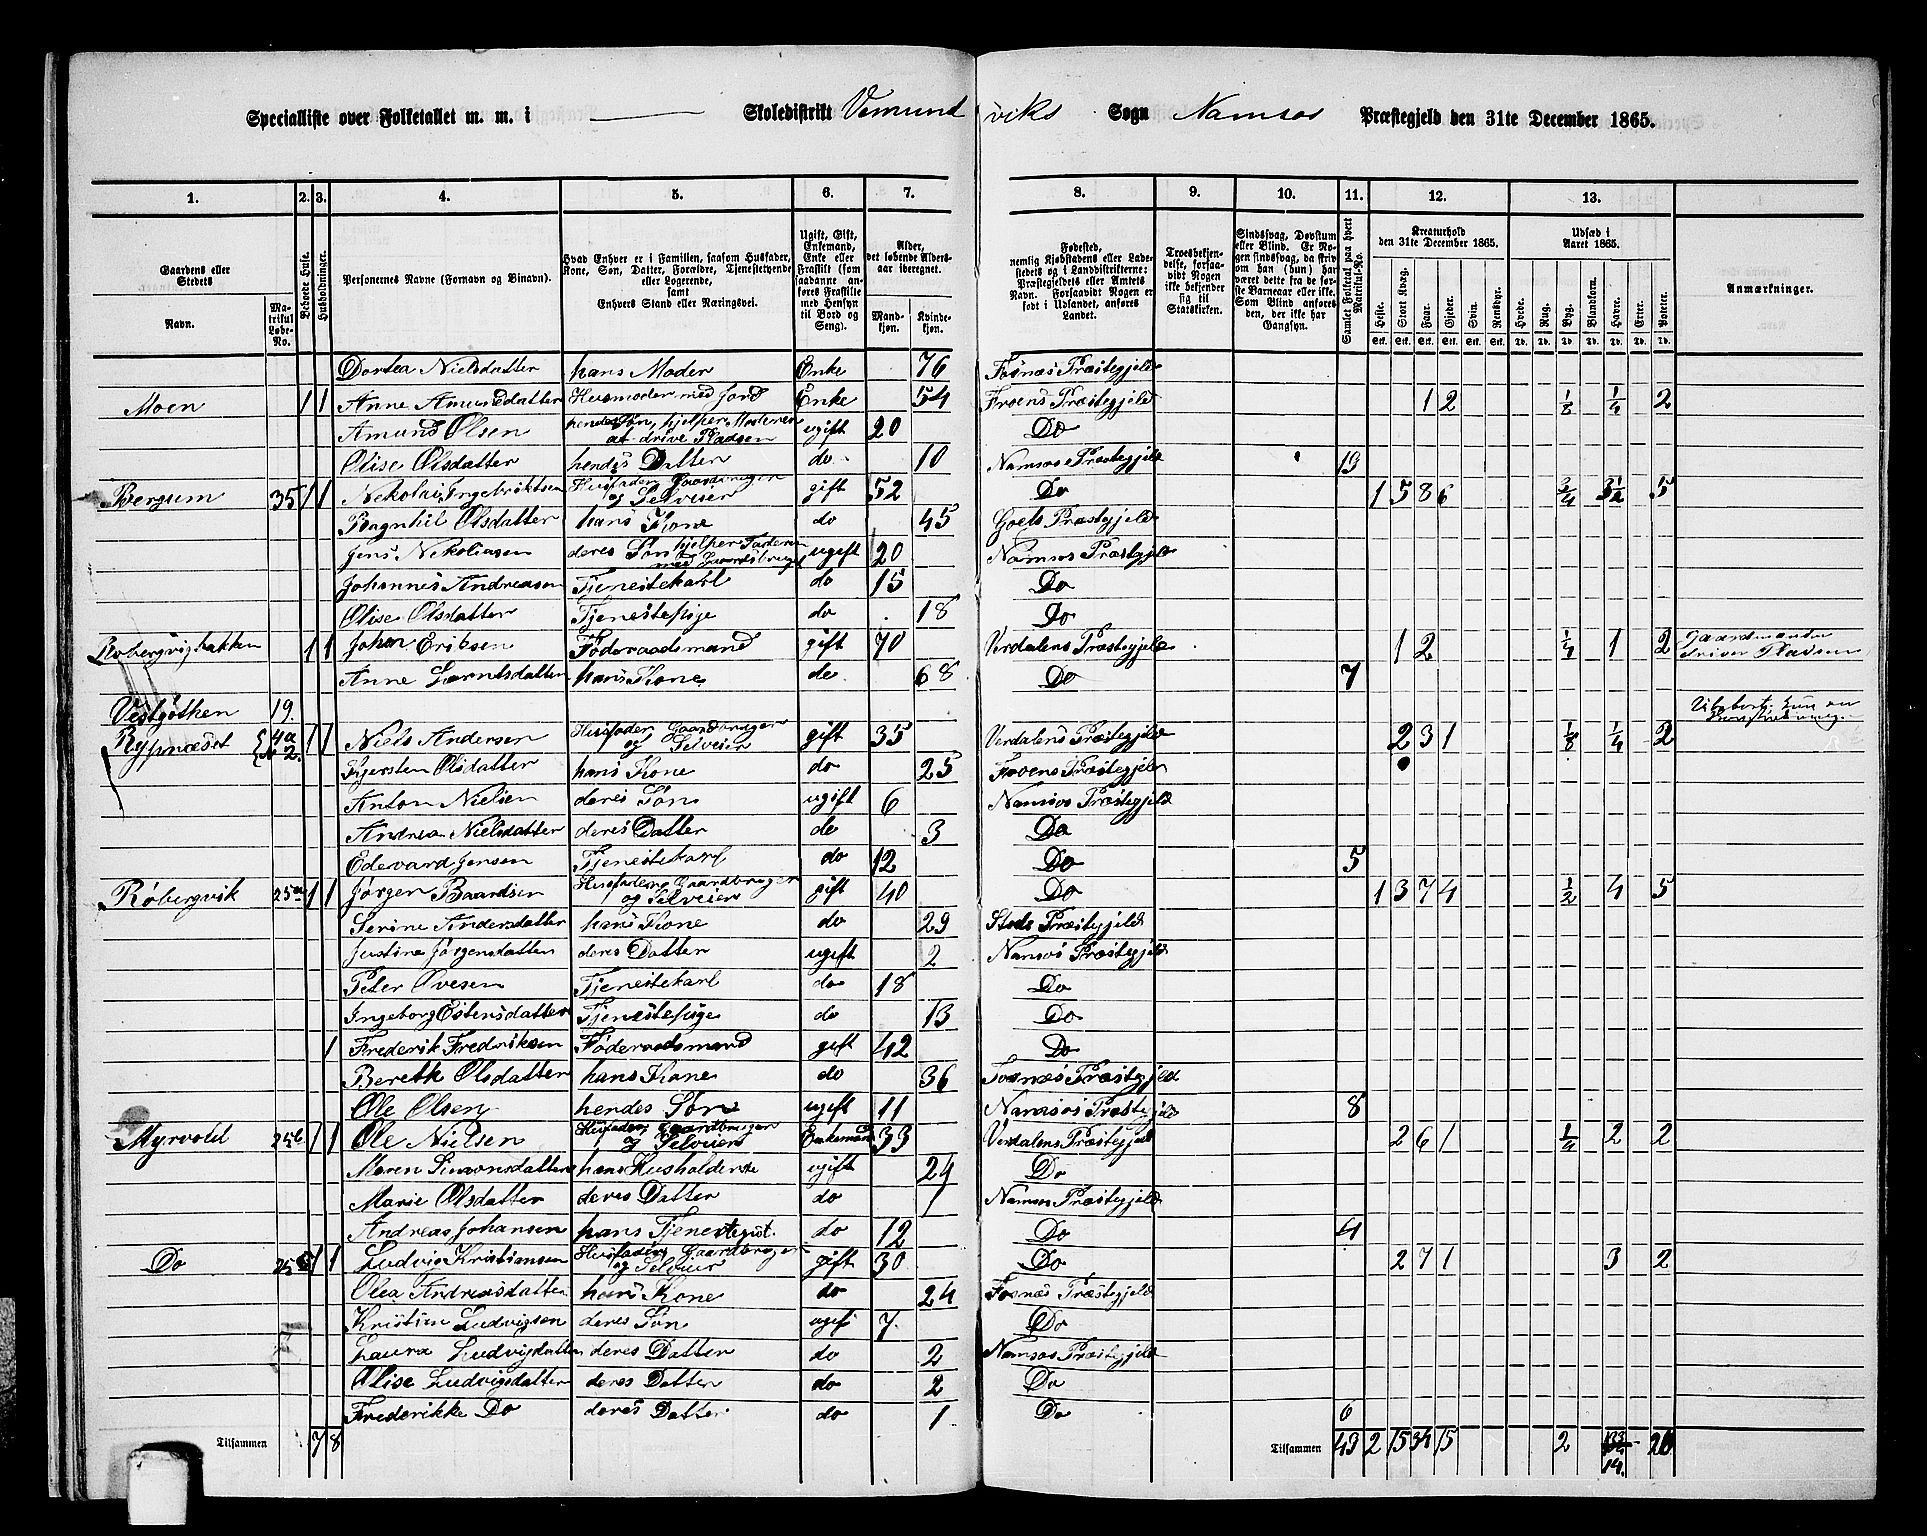 Specialliste over Folketallet m. m. i ——— Skoledistrikt Vemundviks Sogn Namsos Præstegjeld den 31te December 1865.
1. 2. 3. 4. 5. 6. 7. 8. 9. 10. 11. 12. 13.
Gaardens eller Stedets Navn. Matrikul Løbe-No. Beboede Huse. Husholdninger. Personernes Navne (Fornavn og Binavn). Hvad Enhver er i Familien, saasom Husfader, Kone, Søn, Datter, Forældre, Tjenestetyende eller Logerende, samt Enhvers Stand eller Næringsvei. Ugift, Gift, Enkemand, Enke eller Fraskilt (som saadanne anføres Fraskilte med Hensyn til Bord og Seng). Alder, det løbende Alders-aar iberegnet. Mandkjøn. Kvindekjøn.
Fødested, nemlig Kjøbstadens eller Ladestedets og i Landdistrikterne: Præstegjeldets eller Amtets Navn. Forsaavidt Nogen er født i Udlandet, anføres Landet. Troesbekjendelse, forsaavidt Nogen ikke bekjender sig til Statskirken. Sindssvag, Døvstum eller Blind. Er Nogen sindssvag, da skrives om han (hun) har været dette fra de første Barneaar eller ikke. Som Blind anføres den, der ikke har Gangsyn. Samlet Folketal paa hvert Matrikul-No. Kreaturhold den 31te December 1865. Udsæd i Aaret 1865. Anmærkninger.
Heste. Stort Kvæg. Faar. Gjeder. Svin. Rensdyr. Hvede. Rug. Byg. Blandkorn. Havre. Erter. Poteter.
Dortea Nielsdatter hans Moder Enke 76 Fosnæs Præstegjeld
Moen 1 1 Anne Amundsdatter Husmoder med Jord Enke 54 Froens Præstegjeld 1 2 1/8 1/4 2
Amund Olsen hendes Søn, hjelper Moderen at drive Pladsen ugift 20 Do
Olise Olsdatter hendes Datter do 10 Namsos Præstegjeld 13
Bergum 35 1 1 Nekolai Ingebriktsen Husfader, Gaardbruger og Selveier gift 52 Do 1 5 8 6 3/4 3 1/2 5
Ragnhil Olsdatter hans Kone do 45 Præstegjeld
Jens Nekoliasen deres Søn hjelper Faderen med Gaardsbruget ugift 20 Namsos Præstegjeld
Johannes Andreasen Tjenestekarl do 15 Do
Olise Olsdatter Tjenestepige do 18 Do
Røbergvigbakken 1 1 Johan Eriksen Føderaadsmand gift 70 Verdalens Præstegjeld 1 2 1/4 1 2 Gaardmanden driver Pladsen
Anne Larntsdatter hans Kone do 68 Do 7
19.
4a 2. 1 1 Niels Andersen Husfader, Gaardbruger og Selveier gift 35 Verdalens Præstegjeld 2 3 1 1/8 1/4 2
Kjersten Olsdatter hans Kone do 25 Froens Præstegjeld
Anton Nielsen deres Søn ugift 6 Namsos Præstegjeld
Andrea Nielsdatter deres Datter do 3 Do
Edevard Jensen Tjenestekarl do 12 Do 5
Røbergvik 25a 1 1 Jørgen Baardsen Husfader, Gaardbruger og Selveier gift 40 Do 1 3 7 4 1/2 4 5
Serine Andersdatter hans Kone do 29 Stods Præstegjeld
Justine Jørgensdatter deres Datter ugift 2 Namsos Præstegjeld
Peter Ovesen Tjenestekarl do 18 Do
Ingeborg Estensdatter Tjenestepige do 13 Do
1 Frederik Fredriksen Føderaadsmand gift 42 Do
Bereth Olsdatter hans Kone do 36 Fosnæs Præstegjeld
Ole Olsen hendes Søn ugift 11 Namsos Præstegjeld 8
Myrvold 25b 1 1 Ole Nielsen Husfader, Gaardbruger og Selveier Enkemand 33 Verdalens Præstegjeld 2 6 1 1/4 2 2
Maren Simonsdatter hans Husholderske ugift 24 Do
Marie Olsdatter deres Datter do 1 Namsos Præstegjeld
Andreas Johansen hans Tjenestegut. do 12 Do 4
Do 25c 1 1 Ludvig Kristiansen Husfader, Gaardbruger og Selveier gift 30 Do 2 7 1 3 2
Olea Andreasdatter hans Kone do 24 Fosnæs Præstegjeld
Kristian Ludvigsen deres Søn ugift 7 Do
Laura Ludvigdatter deres Datter do 2 Namsos Præstegjeld
Olise Ludvigsdatter deres Datter do 2 Do
Frederikke Do deres Datter do 1 Do 6
Tilsammen 7 8 Tilsammen 43 2 15 34 15 2 14. 20